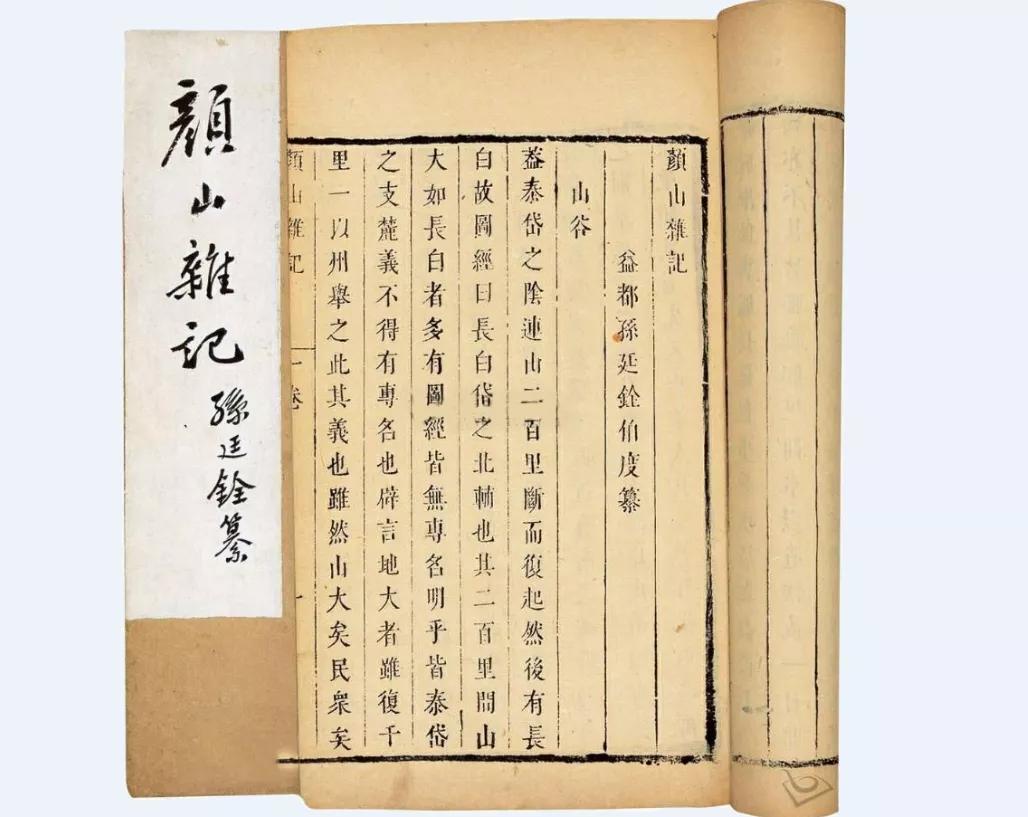 顏山雜記
孫廷銓纂
顏山雜記
益都孫廷銓伯度纂
山谷
葢泰岱之陰連山二百里斷而復起然後有長
白故圖經曰長白岱之北輔也其二百里間山
大如長白者多有圖經皆無專名明乎皆泰岱
之支麓義不得有專名也辟言地大者雖復千
里一以州舉之此其義也雖然山大矣民衆矣
顏山雜記
一卷
一